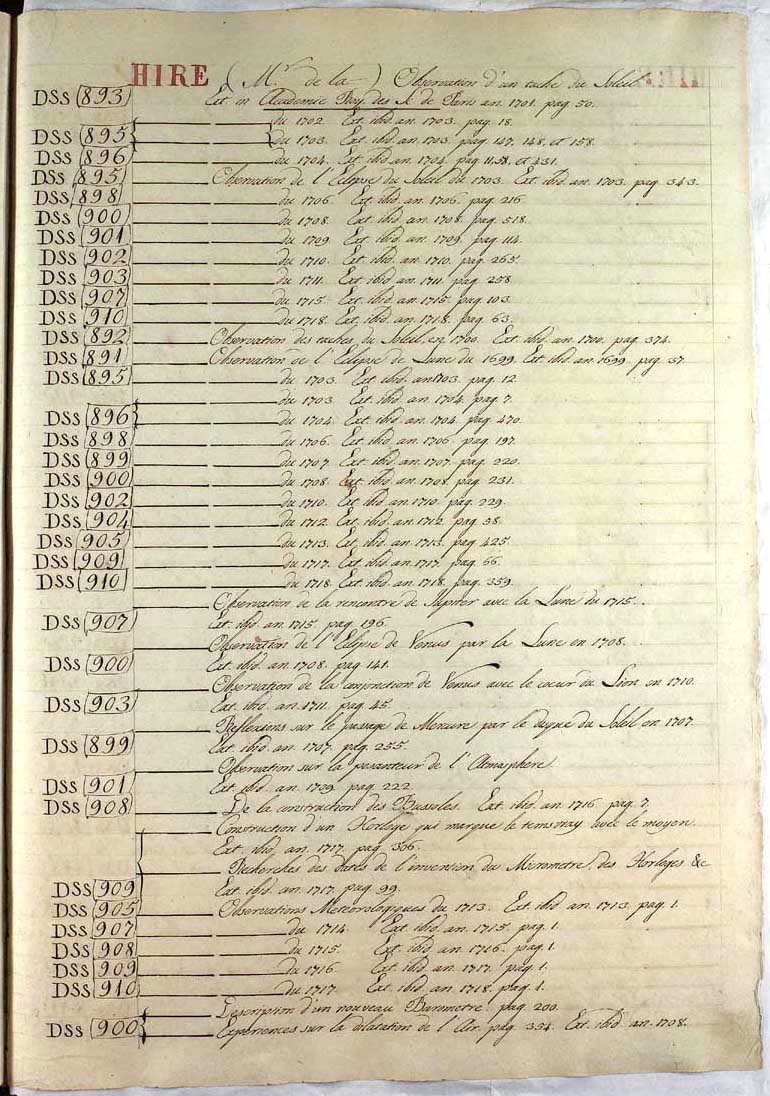 HIRE (Mr. de la) Observation d'un tache du Soleil
DSS (893) Ext. in Academie Roy. des S. de Paris an. 1701. pag. 50.
du 1702. Ext. ibid. an. 1703. pag. 18.
DSS (895) du 1703. Ext. ibid. an. 1703. pag. 147. 148. et 158.
DSS (896) du 1704. Ext. ibid. an. 1704. pag. et 431.
DSS (895) Observation de l'Eclipse du Soleil du 1703. Ext. ibid. an. 1703. pag. 343.
DSS (898) du 1706. Ext. ibid. an. 1706. pag. 216.
DSS (900) du 1708. Ext. ibid. an. 1708. pag. 518.
DSS (901) du 1709. Ext. ibid. an. 1709. pag. 114.
DSS (902) du 1710. Ext. ibid. an. 1710. pag. 265.
DSS (903) du 1711. Ext. ibid. an. 1711. pag. 258.
DSS (907) du 1715. Ext. ibid. an. 1715. pag. 103.
DSS (910) du 1718. Ext. ibid. an. 1718. pag. 63.
DSS (892) Observation des taches du Soleil en 1700. Ext. ibid. an. 1700. pag. 374.
DSS (891) Observation de l'Eclipse de Lune du 1699. Ext. ibid. an. 1699. pag. 37.
DSS (895) du 1703. Ext. ibid. an 1703. pag. 12.
du 1703. Ext. ibid. an. 1704. pag. 7.
DSS (896) du 1704. Ext. ibid. an. 1704. pag. 470.
DSS (898) du 1706. Ext. ibid. an. 1706. pag. 197.
DSS (899) du 1707. Ext. ibid. an. 1707. pag. 220.
DSS (900) du 1708. Ext. ibid. an. 1708. pag. 231.
DSS (902) du 1710. Ext. ibid. an. 1710. pag. 229.
DSS (904) du 1712. Ext. ibid. an. 1712. pag. 38.
DSS (905) du 1713. Ext. ibid. an. 1713. pag. 425.
DSS (909) du 1717. Ext. ibid. an. 1717. pag. 66.
DSS (910) du 1718. Ext. ibid. an. 1718. pag. 359.
Observation de la rencontre de Jupiter avec la Lune du 1715.
DSS (907) Ext. ibid. an. 1715. pag. 196.
Observation de l'Eclipse de Venus par la Lune en 1708.
DSS (900) Ext. ibid. an. 1708. pag. 141.
Observation de la conjonction de Venus avec le cœur du Lion en 1710.
DSS (903) Ext. ibid. an. 1711. pag. 45.
Reflexions sur le passage de Mercure par le disque du Soleil en 1707.
DSS (899) Ext. ibid. an. 1707. pag. 255.
Observation sur la pesanteur de l'Atmosphere
DSS (901) Ext. ibid. an. 1709. pag. 222.
DSS (908) De la construction des Bussoles. Ext. ibid. an. 1716. pag. 7.
Construction d'un Horloge qui marque le tems vray avec le moyen.
Ext. ibid. an. 1717. pag. 306.
Recherches des dates de l'invention du Micrometre, des Horloges &c
DSS (909) Ext. ibid. an. 1717. pag. 99.
DSS (905) Observations Meteorologiques du 1713. Ext. ibid. an. 1713. pag. 1.
DSS (907) du 1714. Ext. ibid. an. 1715. pag. 1.
DSS (908) du 1715. Ext. ibid. an. 1716. pag. 1.
DSS (909) du 1716. Ext. ibid. an. 1717. pag. 1.
DSS (910) du 1717. Ext. ibid. an. 1718. pag. 1.
Description d'un nouveau Barometre. pag. 200.
DSS (900) Experiences sur la dilatation de l'Air. pag. 354. Ext. ibid. an. 1708.